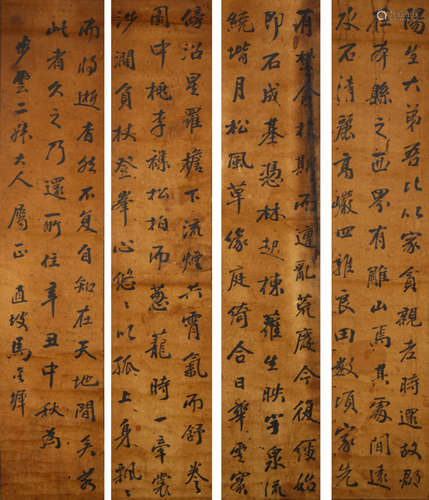 陽生大弟吾比以家貧親老時還故郡
在本縣之西界有雕山焉其處間遠
水石清麗高巖四良田數頃家先
有埜舍於斯而遭亂荒廢今復經始
即石成基憑林起棟蘿生映宇泉流
繞堦月松風草緣庭綺合日華雲實
傍沼星羅檐下流煙共霄氣而舒卷
園中桃李襍松柏而蔥蘢時一牽裳
涉澗負杖登峯心悠〻以孤上身飄〻
而將逝杳然不復自知在天地間矣若
此者久之乃還所住辛丑中秋為
步雲二大人屬正 直坡馬墀